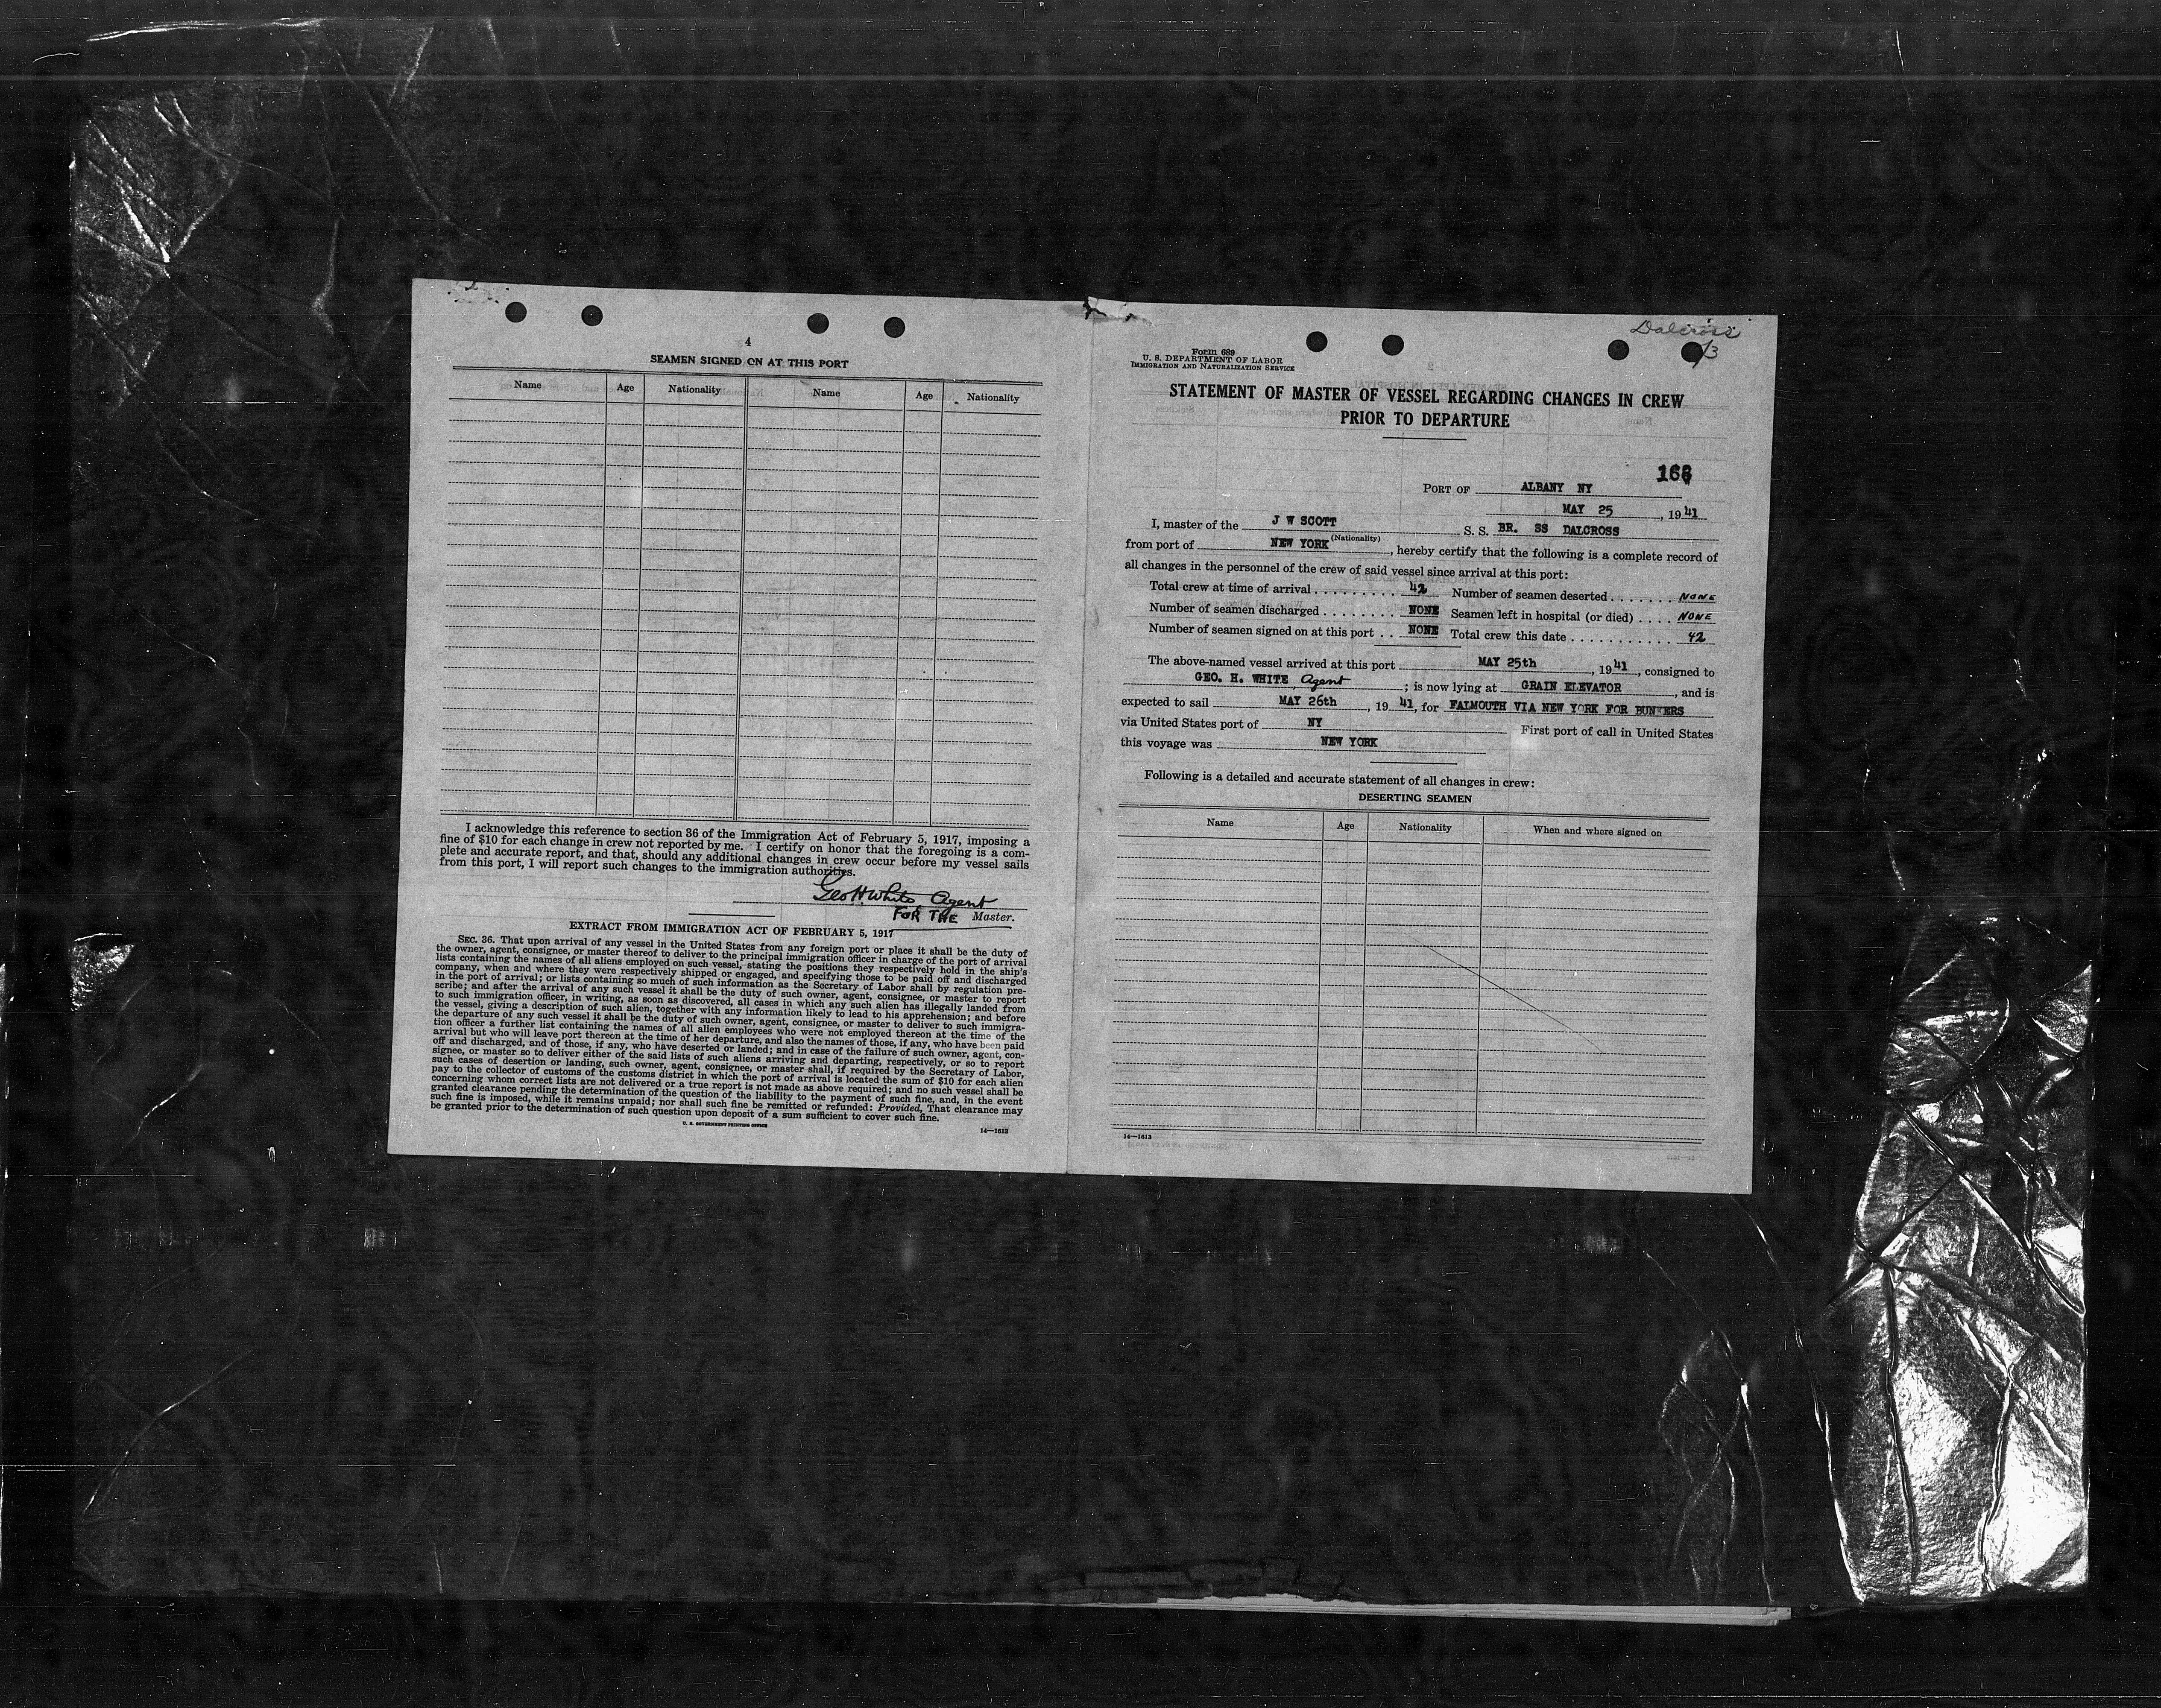 4
SEAMEN SIGNED ON AT THIS PORT
Name Age Nationality Name Age Nationality
I acknowledge this reference to section 36 of the Immigration Act of February 5, 1917, imposing a
fine of $10 for each change in crew not reported by me. I certify on honor that the foregoing is a com-
plete and accurate report, and that, should any additional changes in crew occur before my vessel sails
from this port, I will report such changes to the immigration authorities.
Geo H. White Agent
FOR THE Master.
EXTRACT FROM IMMIGRATION ACT OF FEBRUARY 5, 1917
SEC. 36. That upon arrival of any vessel in the United States from any foreign port or place it shall be the duty of
the owner, agent, consignee, or master thereof to deliver to the principal immigration officer in charge of the port of arrival
lists containing the names of all aliens employed on such vessel, stating the positions they respectively hold in the ship's
company, when and where they were respectively shipped or engaged, and specifying those to be paid off and discharged
in the port of arrival; or lists containing so much of such information as the Secretary of Labor shall by regulation pre-
scribe; and after the arrival of any such vessel it shall be the duty of such owner, agent, consignee, or master to report
to such immigration officer, in writing, as soon as discovered, all cases in which any such alien has illegally landed from
the vessel, giving a description of such alien, together with any information likely to lead to his apprehension; and before
the departure of any such vessel it shall be the duty of such owner, agent, consignee, or master to deliver to such immigra-
tion officer a further list containing the names of all alien employees who were not employed thereon at the time of the
arrival but who will leave port thereon at the time of her departure, and also the names of those, if any, who have been paid
off and discharged, and of those, if any, who have deserted or landed; and in case of the failure of such owner, agent, con-
signee, or master so to deliver either of the said lists of such aliens arriving and departing, respectively, or so to report
such cases of desertion or landing, such owner, agent, consignee, or master shall, if required by the Secretary of Labor,
pay to the collector of customs of the customs district in which the port of arrival is located the sum of $10 for each alien
concerning whom correct lists are not delivered or a true report is not made as above required; and no such vessel shall be
granted clearance pending the determination of the question of the liability to the payment of such fine, and, in the event
such fine is imposed, while it remains unpaid; nor shall such fine be remitted or refunded: Provided, That clearance may
be granted prior to the determination of such question upon deposit of a sum sufficient to cover such fine.
U. S. GOVERNMENT PRINTING OFFICE 14—1613
Dalcross
Form 689
U. S. DEPARTMENT OF LABOR
IMMIGRATION AND NATURALIZATION SERVICE
STATEMENT OF MASTER OF VESSEL REGARDING CHANGES IN CREW
PRIOR TO DEPARTURE
PORT OF ALBANY NY
MAY 25, 1941
I, master of the J W SCOTT S. S. BR. SS DALCROSS
(Nationality)
from port of NEW YORK, hereby certify that the following is a complete record of
all changes in the personnel of the crew of said vessel since arrival at this port:
Total crew at time of arrival . . . . . . . . . 42 Number of seamen deserted . . . . . . . NONE
Number of seamen discharged . . . . . . . . NONE Seamen left in hospital (or died) . . . . NONE
Number of seamen signed on at this port . . NONE Total crew this date . . . . . . . . . . . 42
The above-named vessel arrived at this port MAY 25th, 1941, consigned to
GEO. H. WHITE, Agent; is now lying at GRAIN ELEVATOR, and is
expected to sail MAY 26th, 1941, for FALMOUTH VIA NEW YORK FOR BUNKERS
via United States port of NY First port of call in United States
this voyage was NEW YORK
Following is a detailed and accurate statement of all changes in crew:
DESERTING SEAMEN
Name Age Nationality When and where signed on
14—1613